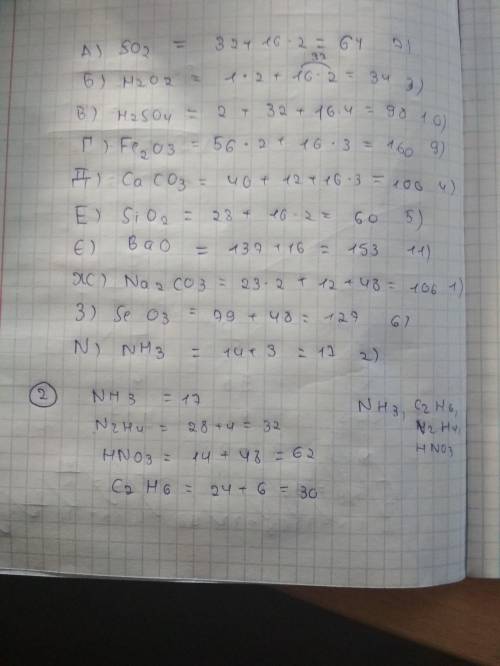 А) SO2 = 32 + 16 · 2 = 64
32
Б) H2O2 = 1 · 2 + 16 · 2 = 34 3)
В) H2SO4 = 2 + 32 + 16 · 4 = 98 10)
Г) Fe2O3 = 56 · 2 + 16 · 3 = 160 9)
Д) CaCO3 = 40 + 12 + 16 · 3 = 100 4)
Е) SiO2 = 28 + 16 · 2 = 60 5)
Є) BaO = 137 + 16 = 153 11)
Ж) Na2CO3 = 23 · 2 + 12 + 48 = 106 1)
З) SeO3 = 79 + 48 = 127 6)
NH3 = 14 + 3 = 17 2)
2 NH3 = 17 NH3, C2H6,
N2H4 = 28 + 4 = 32 N2H4,
HNO3 = 14 + 48 = 62 HNO3
C2H6 = 24 + 6 = 30